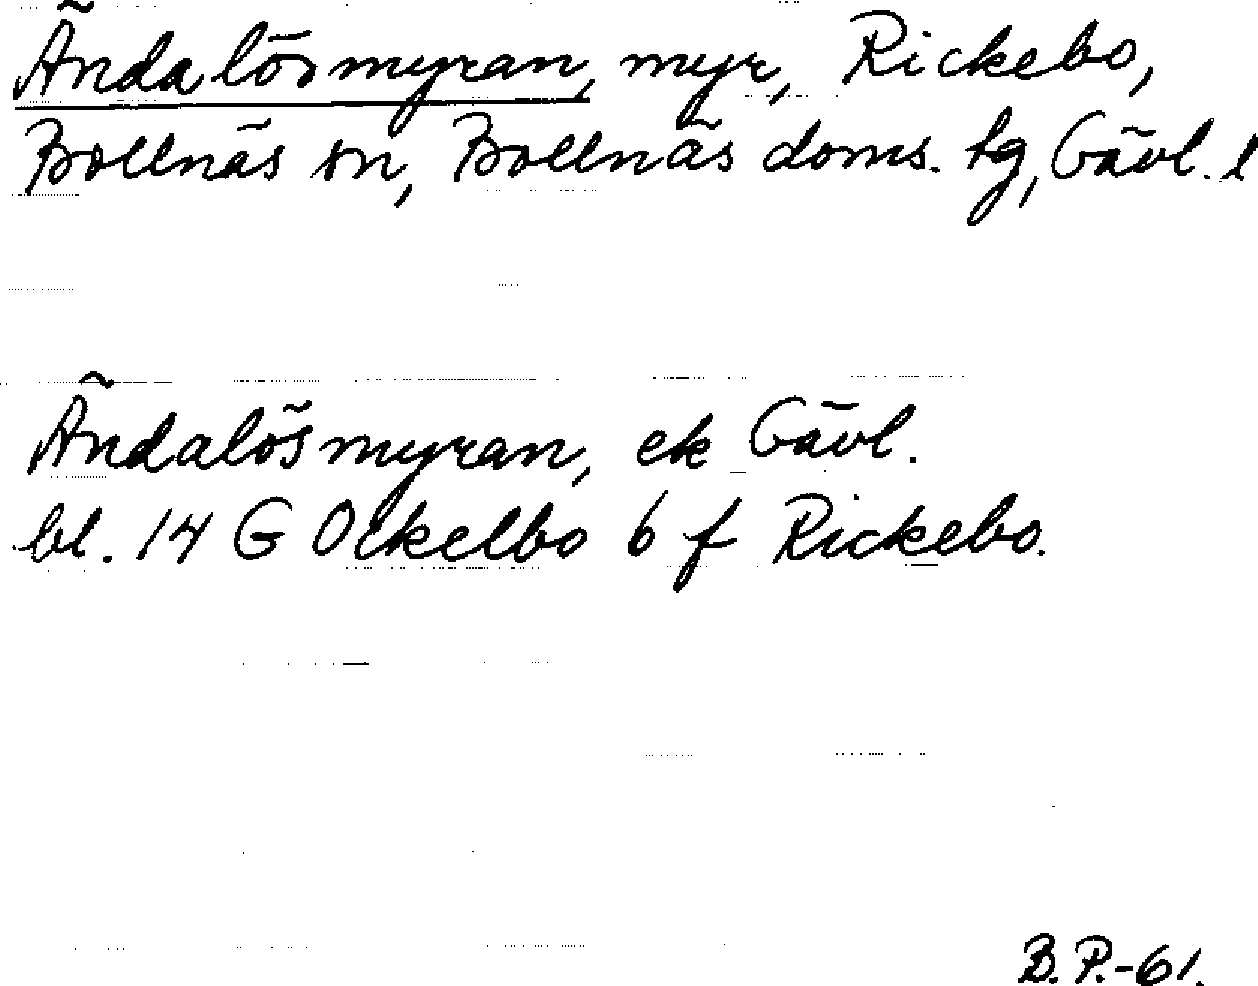 Ändalösmyran, myr, Rickebo,
Bollnäs sn, Bollnäs doms. tg, Gävl. l
Ändalösmyran, ek Gävl.
bl. 14 G Ockelbo 6 f Rickebo.
B.P.-61.